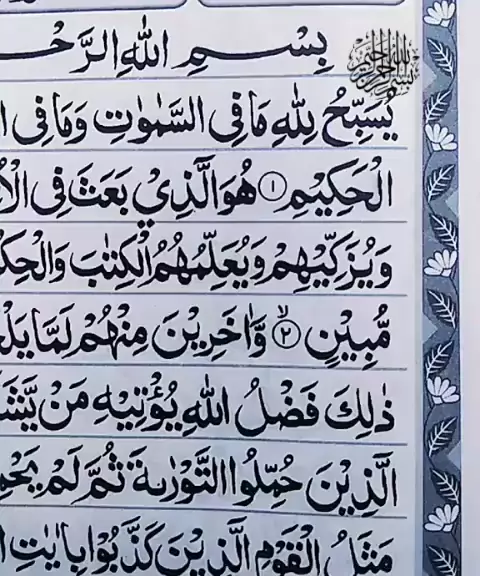 بِسْمِ اللهِ الرَّحْ
يُسَبِّحُ لِلّٰهِ مَا فِى السَّمٰوٰتِ وَمَا فِى ا
الْحَكِيْمِ ۝۱ هُوَ الَّذِيْ بَعَثَ فِى الْاُ
وَيُزَكِّيْهِمْ وَيُعَلِّمُهُمُ الْكِتٰبَ وَالْحِكْ
مُّبِيْنٍ ۝۲ۙ وَّاٰخَرِيْنَ مِنْهُمْ لَمَّا يَلْحَ
ذٰلِكَ فَضْلُ اللهِ يُؤْتِيْهِ مَنْ يَّشَا
الَّذِيْنَ حُمِّلُوا التَّوْرٰىةَ ثُمَّ لَمْ يَحْمِ
مَثَلُ الْقَوْمِ الَّذِيْنَ كَذَّبُوْا بِاٰيٰتِ ا